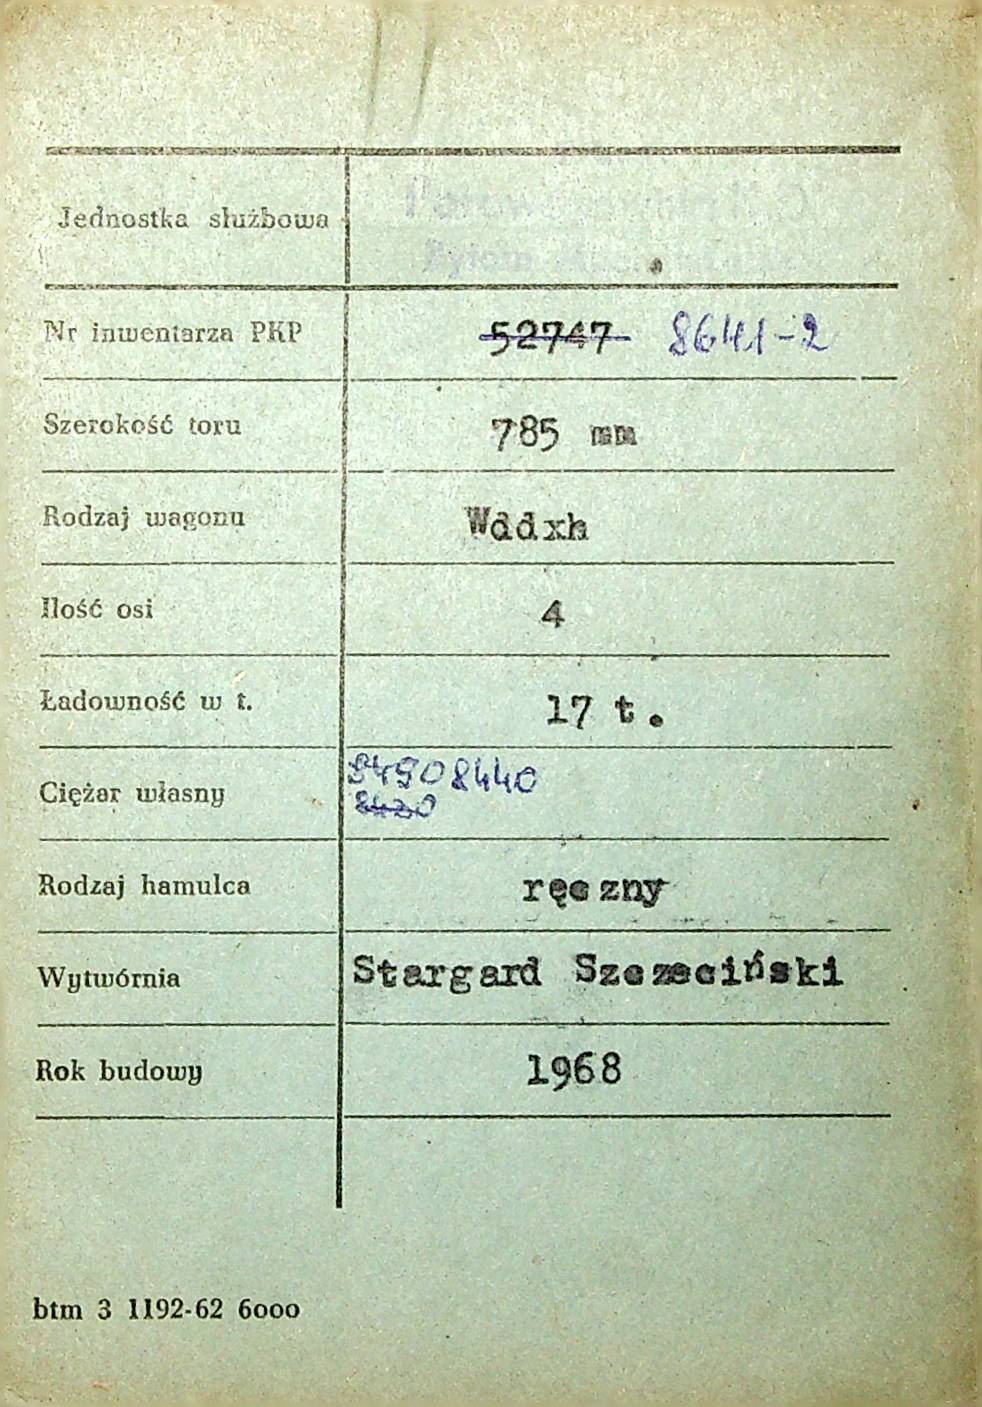 Jednostka służbowa
Nr inwentarza PKP 52747 8641-2
Szerokość toru 785 mm
Rodzaj wagonu Wddxh
Ilość osi 4
Ładowność w t. 17 t.
Ciężar własny 8440
8420
Rodzaj hamulca ręczny
Wytwórnia Stargard Szczeciński
Rok budowy 1968
btm 3 1192-62 6000